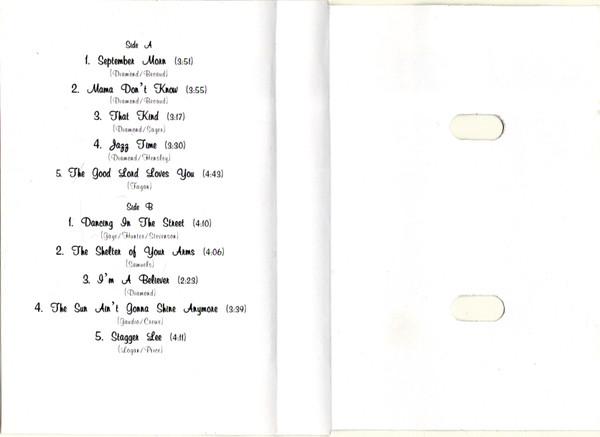 Side A
1. September Morn (3:51)
(Diamond/Becaud)
2. Mama Don't Know (3:55)
(Diamond/Becaud)
3. That Kind (3:17)
(Diamond/Sager)
4. Jazz Time (3:30)
(Diamond/Hensley)
5. The Good Lord Loves You (4:43)
(Fagan)
Side B
1. Dancing In The Street (4:10)
(Gaye/Hunter/Stevenson)
2. The Shelter of Your Arms (4:06)
(Samuels)
3. I'm A Believer (2:23)
(Diamond)
4. The Sun Ain't Gonna Shine Anymore (3:39)
(Gaudio/Crewe)
5. Stagger Lee (4:11)
(Logan/Price)